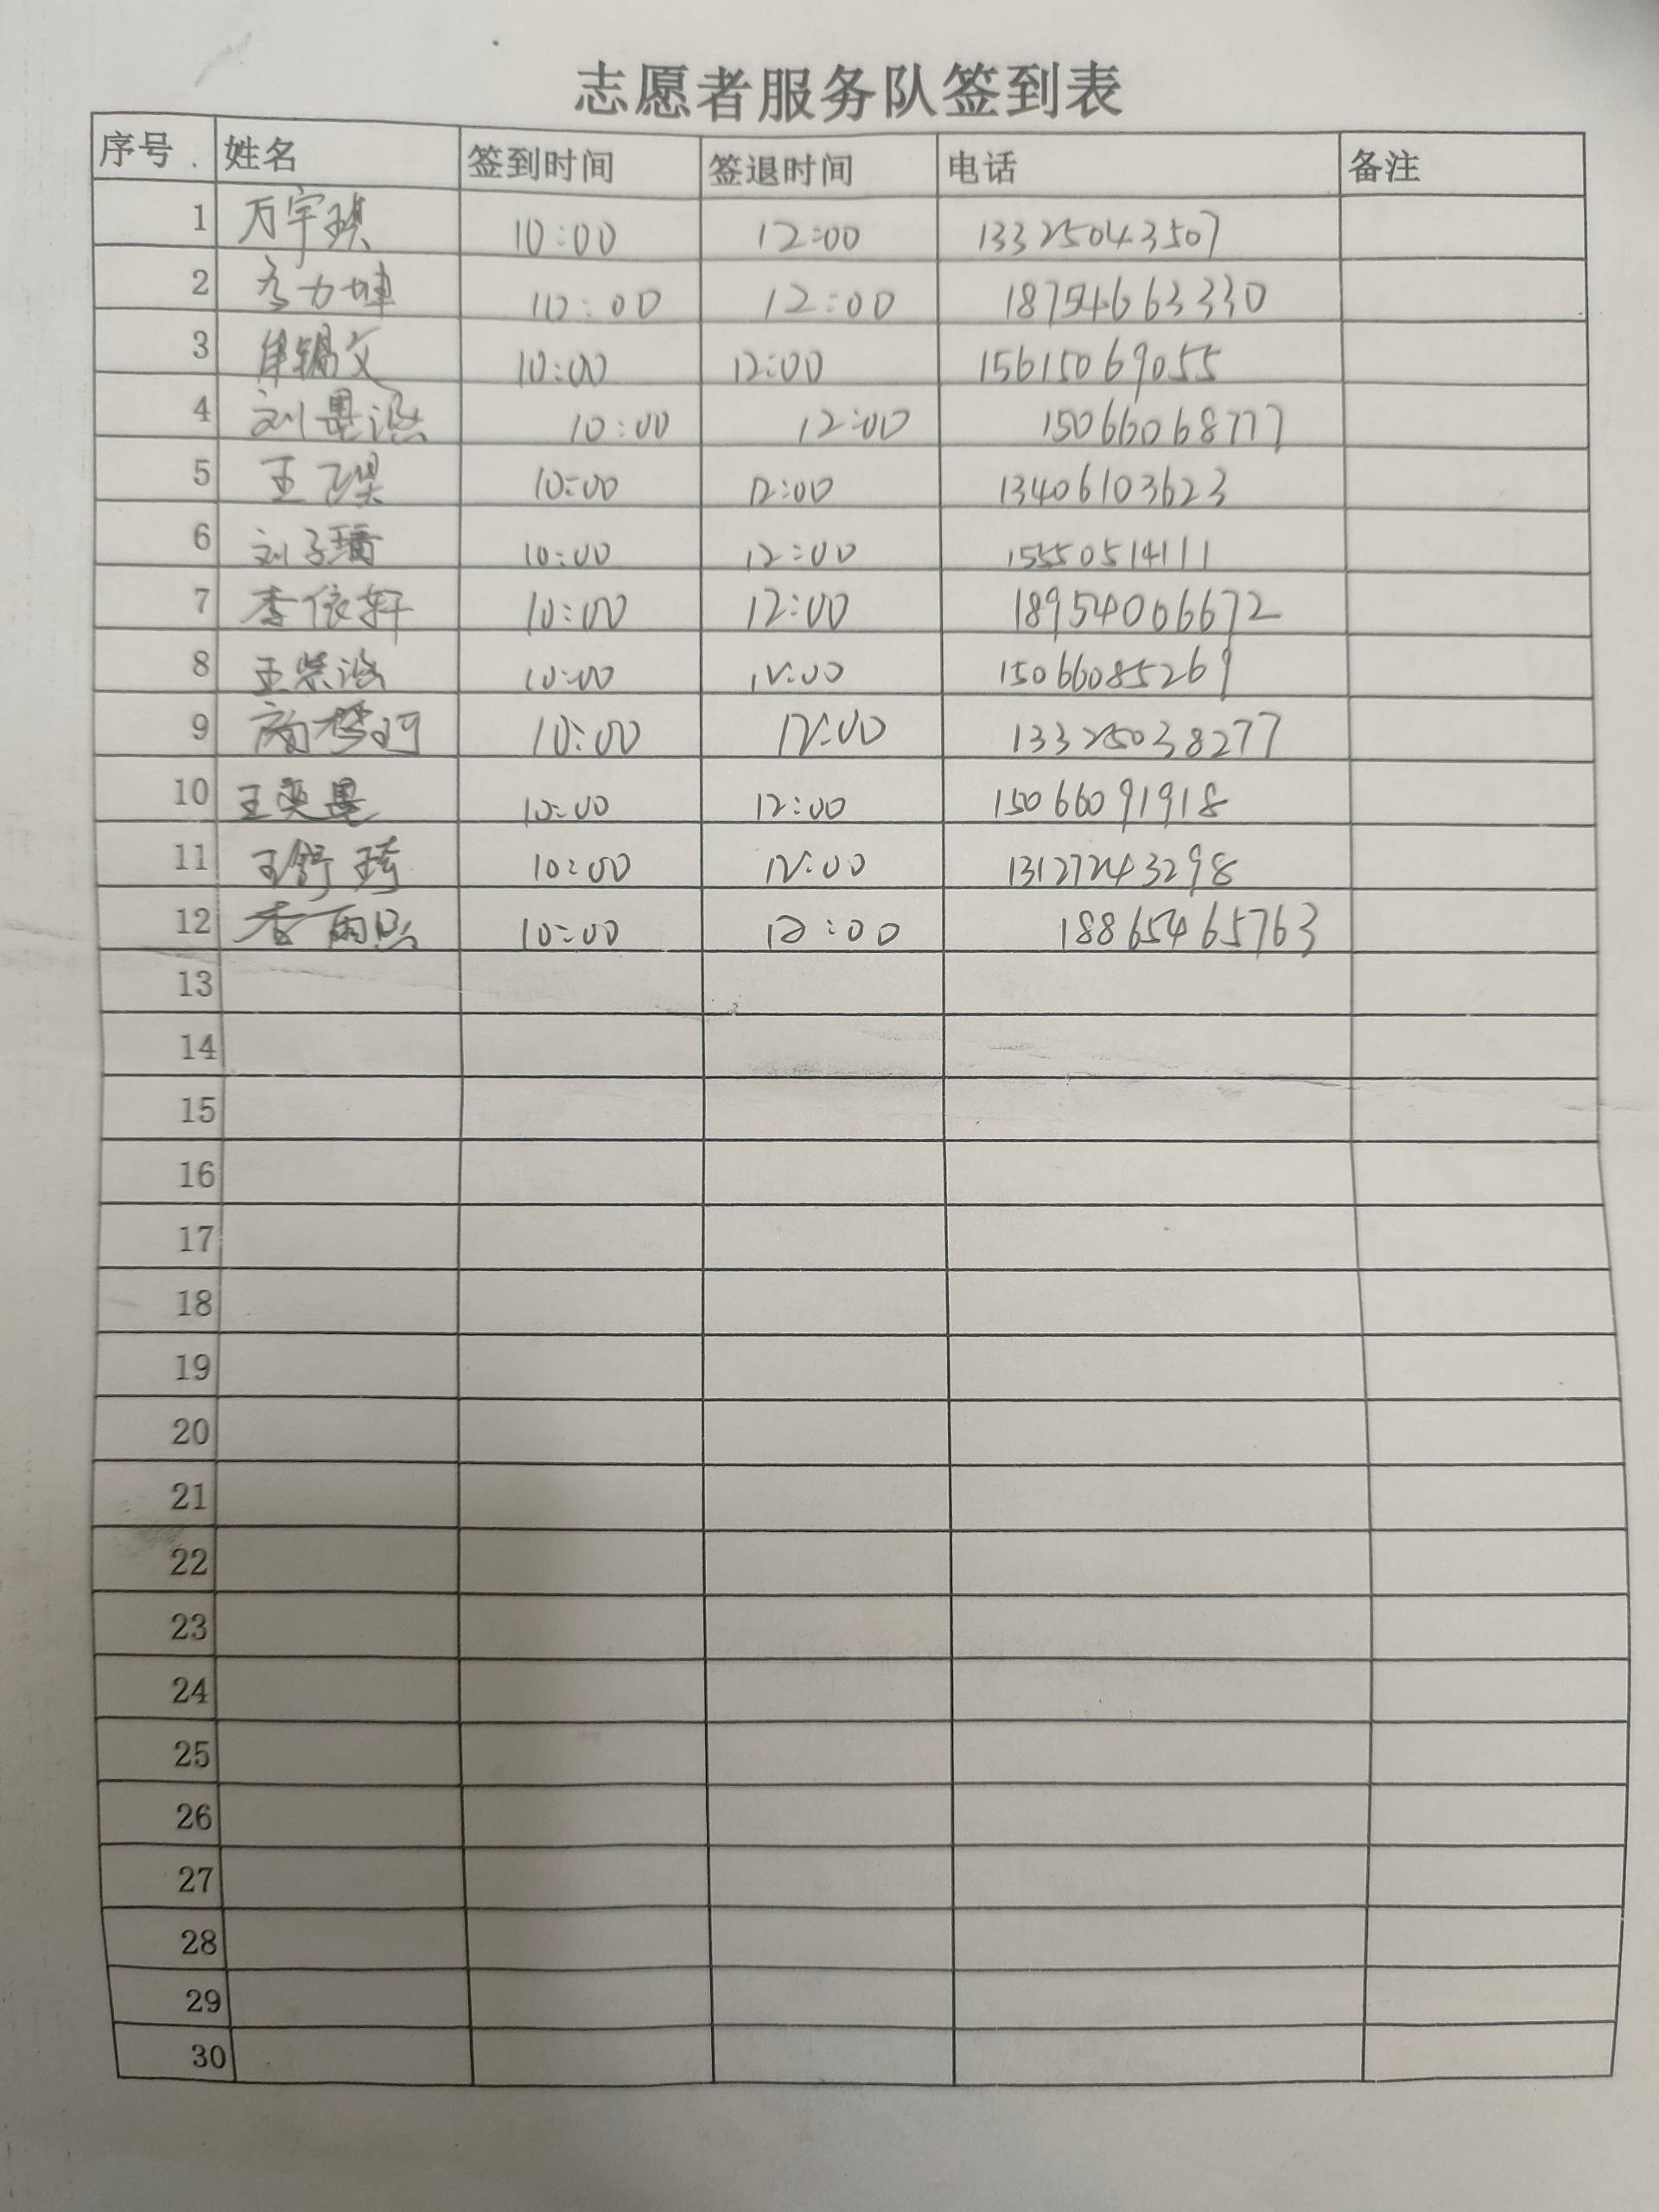 志愿者服务队签到表
序号 姓名 签到时间 签退时间 电话 备注
1 万宇琪 10:00 12:00 13325043507
2 10:00 12:00 18754663330
3 10:00 12:00 15615069055
4 刘昱泓 10:00 12:00 15066068777
5 王 10:00 12:00 13406103623
6 刘子 10:00 12:00 15550514111
7 李依轩 10:00 12:00 18954006672
8 王 10:00 12:00 15066085269
9 梦珂 10:00 12:00 13325038277
10 王奕昱 10:00 12:00 15066091918
11 王舒琦 10:00 12:00 13127243298
12 李雨 10:00 12:00 18865465763
13
14
15
16
17
18
19
20
21
22
23
24
25
26
27
28
29
30